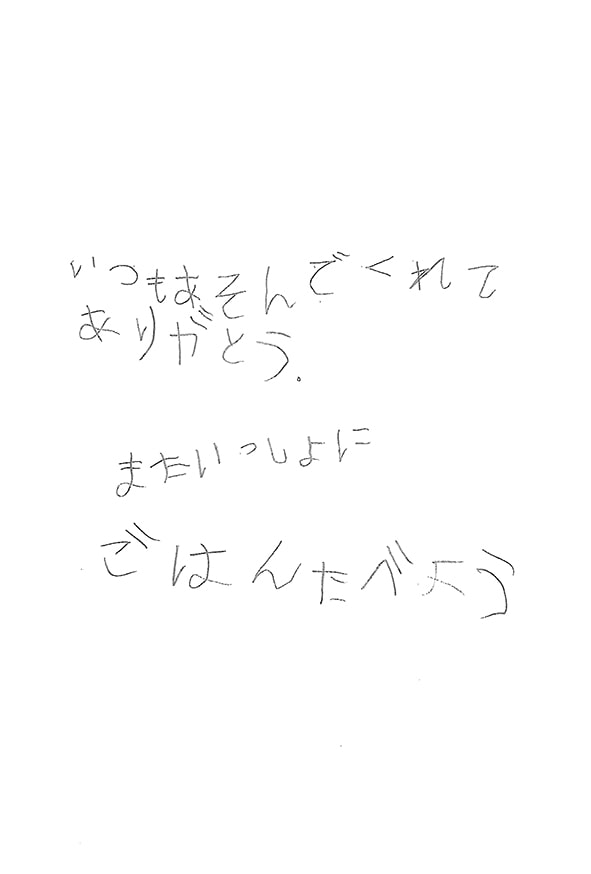 いつもあそんでくれて
ありがとう.
またいっしょに
ごはんたべよう